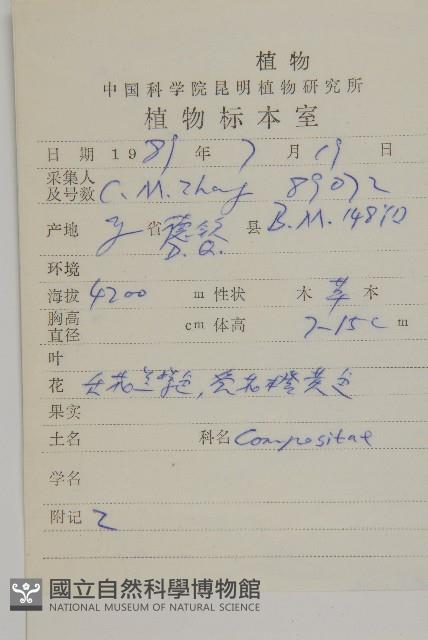 植物
中国科学院昆明植物研究所
植物标本室
日期 1989 年 7 月 19 日
采集人
及号数 C. M. Zhang 89072
产地 省 德钦 县 B.M. 148
D. Q.
环境
海拔 4200 m 性状 木 草 本
胸高
直径 cm 体高 7-15c m
叶
花 花兰紫色, 花橙黄色
果实
土名 科名 Compositae
学名
附记 2
國立自然科學博物館
NATIONAL MUSEUM OF NATURAL SCIENCE